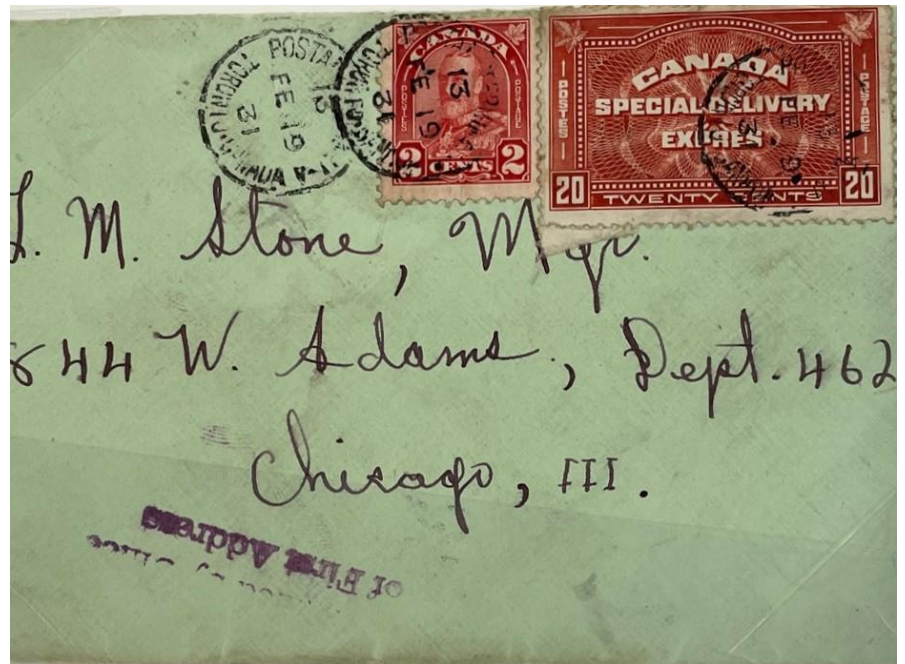 POSTAL
13
FE 19
31
TORONTO CANADA
CANADA
POSTES POSTAGE
2 CENTS 2
CANADA
SPECIAL DELIVERY
EXPRES
POSTES POSTAGE
20 TWENTY CENTS 20
L. M. Stone, Mgr.
844 W. Adams, Dept. 462
Chicago, Ill.
of First Address